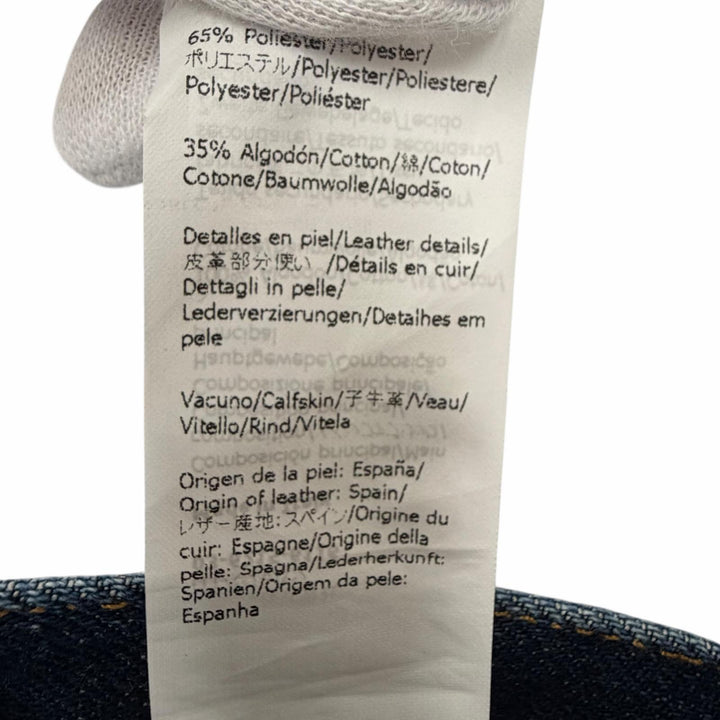 65% Poliester/Polyester/
ポリエステル/Polyester/Poliestere/
Polyester/Poliéster
35% Algodón/Cotton/綿/Coton/
Cotone/Baumwolle/Algodão
Detalles en piel/Leather details/
皮革部分使い /Détails en cuir/
Dettagli in pelle/
Lederverzierungen/Detalhes em
pele
Vacuno/Calfskin/子牛革/Veau/
Vitello/Rind/Vitela
Origen de la piel: España/
Origin of leather: Spain/
レザー産地: スペイン/Origine du
cuir: Espagne/Origine della
pelle: Spagna/Lederherkunft:
Spanien/Origem da pele:
Espanha